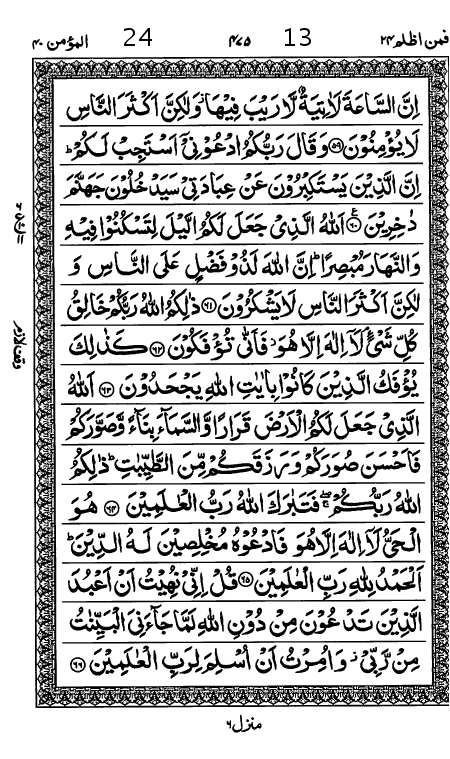 فمن اظلم ۲۴ 13 ۴۷۵ 24 المؤمن ۴۰
اِنَّ السَّاعَةَ لَاٰتِيَةٌ لَّا رَيْبَ فِيْهَا وَلٰكِنَّ اَكْثَرَ النَّاسِ
لَا يُؤْمِنُوْنَ ﴿۵۹﴾ وَقَالَ رَبُّكُمُ ادْعُوْنِيْٓ اَسْتَجِبْ لَكُمْ ؕ
اِنَّ الَّذِيْنَ يَسْتَكْبِرُوْنَ عَنْ عِبَادَتِيْ سَيَدْخُلُوْنَ جَهَنَّمَ
دٰخِرِيْنَ ﴿۶۰﴾ اَللّٰهُ الَّذِيْ جَعَلَ لَكُمُ الَّيْلَ لِتَسْكُنُوْا فِيْهِ
وَالنَّهَارَ مُبْصِرًا ؕ اِنَّ اللّٰهَ لَذُوْ فَضْلٍ عَلَى النَّاسِ وَ
لٰكِنَّ اَكْثَرَ النَّاسِ لَا يَشْكُرُوْنَ ﴿۶۱﴾ ذٰلِكُمُ اللّٰهُ رَبُّكُمْ خَالِقُ
كُلِّ شَيْءٍ ۘ لَآ اِلٰهَ اِلَّا هُوَ ۫ فَاَنّٰى تُؤْفَكُوْنَ ﴿۶۲﴾ كَذٰلِكَ
يُؤْفَكُ الَّذِيْنَ كَانُوْا بِاٰيٰتِ اللّٰهِ يَجْحَدُوْنَ ﴿۶۳﴾ اَللّٰهُ
الَّذِيْ جَعَلَ لَكُمُ الْاَرْضَ قَرَارًا وَّالسَّمَآءَ بِنَآءً وَّصَوَّرَكُمْ
فَاَحْسَنَ صُوَرَكُمْ وَرَزَقَكُمْ مِّنَ الطَّيِّبٰتِ ؕ ذٰلِكُمُ
اللّٰهُ رَبُّكُمْ ۖ فَتَبٰرَكَ اللّٰهُ رَبُّ الْعٰلَمِيْنَ ﴿۶۴﴾ هُوَ
الْحَيُّ لَآ اِلٰهَ اِلَّا هُوَ فَادْعُوْهُ مُخْلِصِيْنَ لَهُ الدِّيْنَ ؕ
اَلْحَمْدُ لِلّٰهِ رَبِّ الْعٰلَمِيْنَ ﴿۶۵﴾ قُلْ اِنِّيْ نُهِيْتُ اَنْ اَعْبُدَ
الَّذِيْنَ تَدْعُوْنَ مِنْ دُوْنِ اللّٰهِ لَمَّا جَآءَنِيَ الْبَيِّنٰتُ
مِنْ رَّبِّيْ ۫ وَاُمِرْتُ اَنْ اُسْلِمَ لِرَبِّ الْعٰلَمِيْنَ ﴿۶۶﴾
وقف لازم
منزل ۶